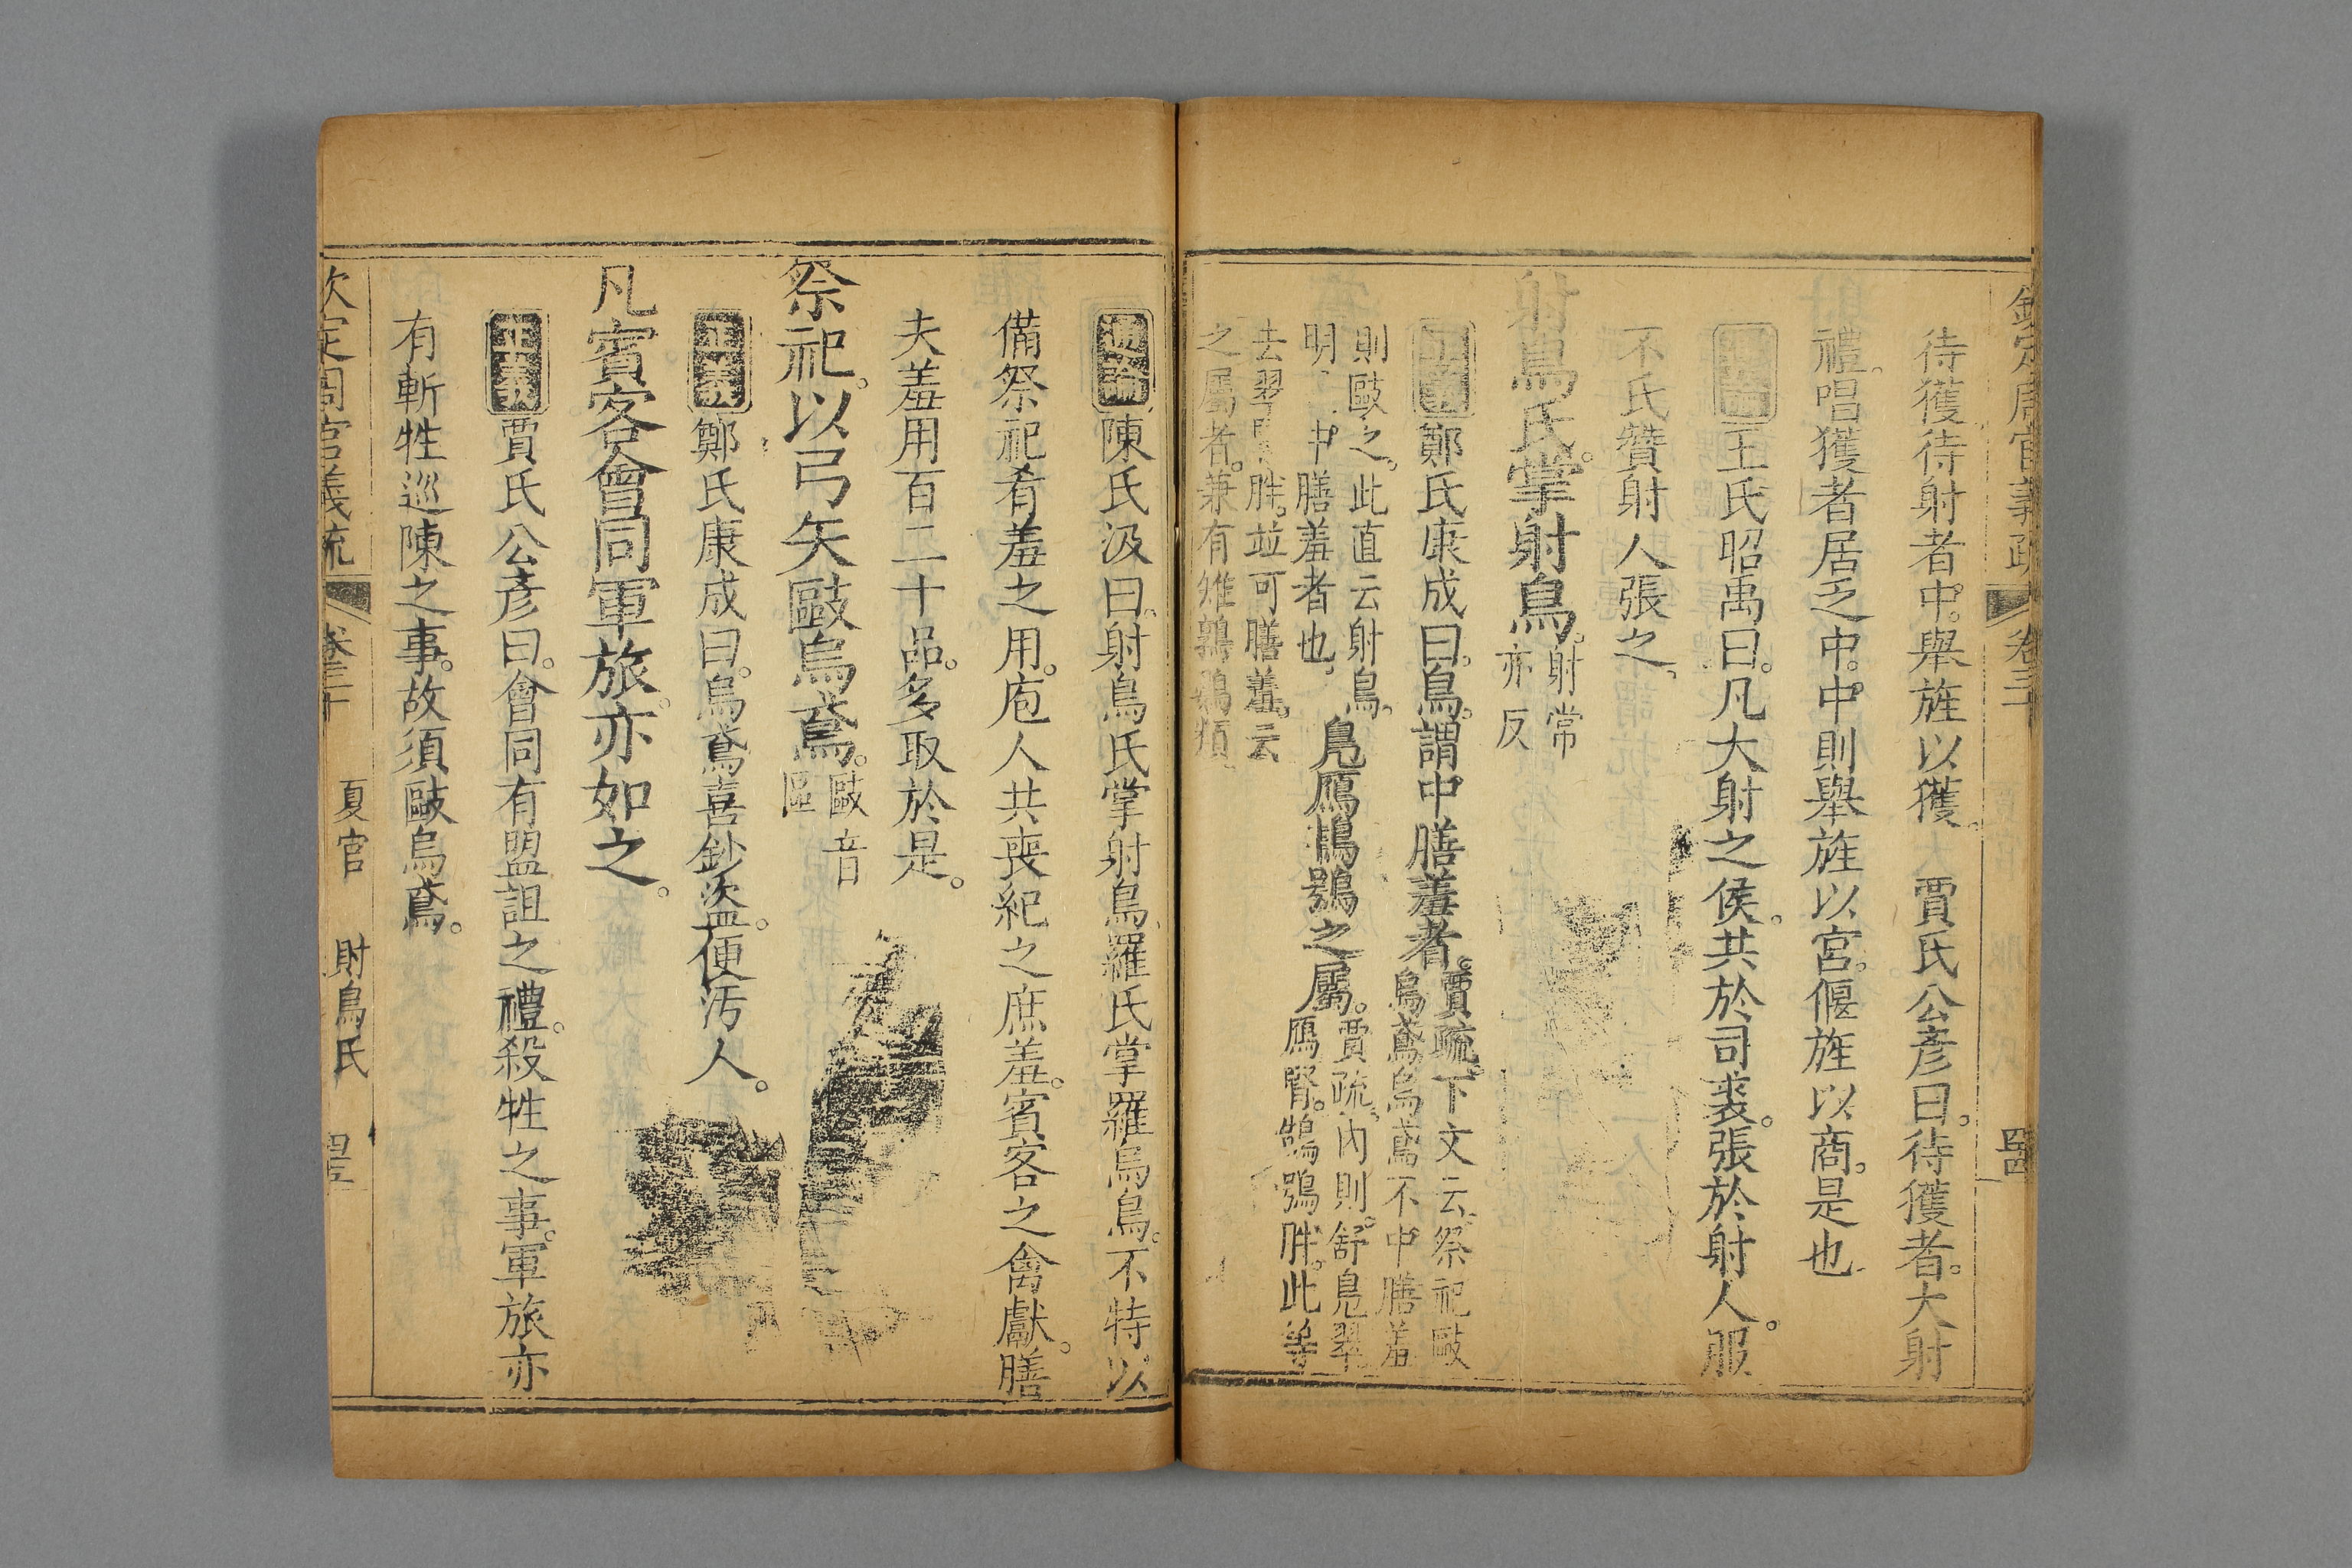 欽定周官義疏 卷三
待獲待射者中。舉旌以獲。 賈氏公彥曰。待獲者。大射
禮。唱獲者居乏中。中則舉旌以宮。偃旌以商。是也
王氏昭禹曰。凡大射之侯。共於司裘。張於射人。服
不氏贊射人張之。
射鳥氏。掌射鳥。射常亦反
正義 鄭氏康成曰。鳥。謂中膳羞者。賈疏。下文云。祭祀歐烏鳶烏鳶不中膳羞
則歐之。此直云射鳥。明 中膳羞者也。 鳧鴈鴇鴞之屬。賈疏。內則。舒鳧翠鴈腎。鵠鴞胖。此等
去翠 胖。並可膳羞。云之屬者。兼有雉鶉鷃類
通論 陳氏汲曰。射鳥氏掌射鳥。羅氏掌羅烏鳥。不特以
備祭祀肴羞之用。庖人共喪紀之庶羞。賓客之禽獻。膳
夫羞用百二十品。多取於是。
祭祀。以弓矢歐烏鳶。歐音區
正義 鄭氏康成曰。烏鳶喜鈔盜。便汚人。
凡賓客會同軍旅。亦如之。
正義 賈氏公彥曰。會同有盟詛之禮。殺牲之事。軍旅亦
有斬牲巡陳之事。故須歐烏鳶。
欽定周官義疏 卷三十 夏官 射鳥氏